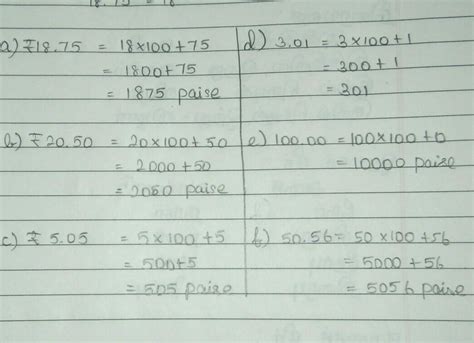 a) ₹18.75 = 18×100+75
= 1800+75
= 1875 paise
b) ₹20.50 = 20×100+50
= 2000+50
= 2050 paise
c) ₹5.05 = 5×100+5
= 500+5
= 505 paise
d) 3.01 = 3×100+1
= 300+1
= 301
e) 100.00 = 100×100+0
= 10000 paise
f) 50.56 = 50×100+56
= 5000+56
= 5056 paise